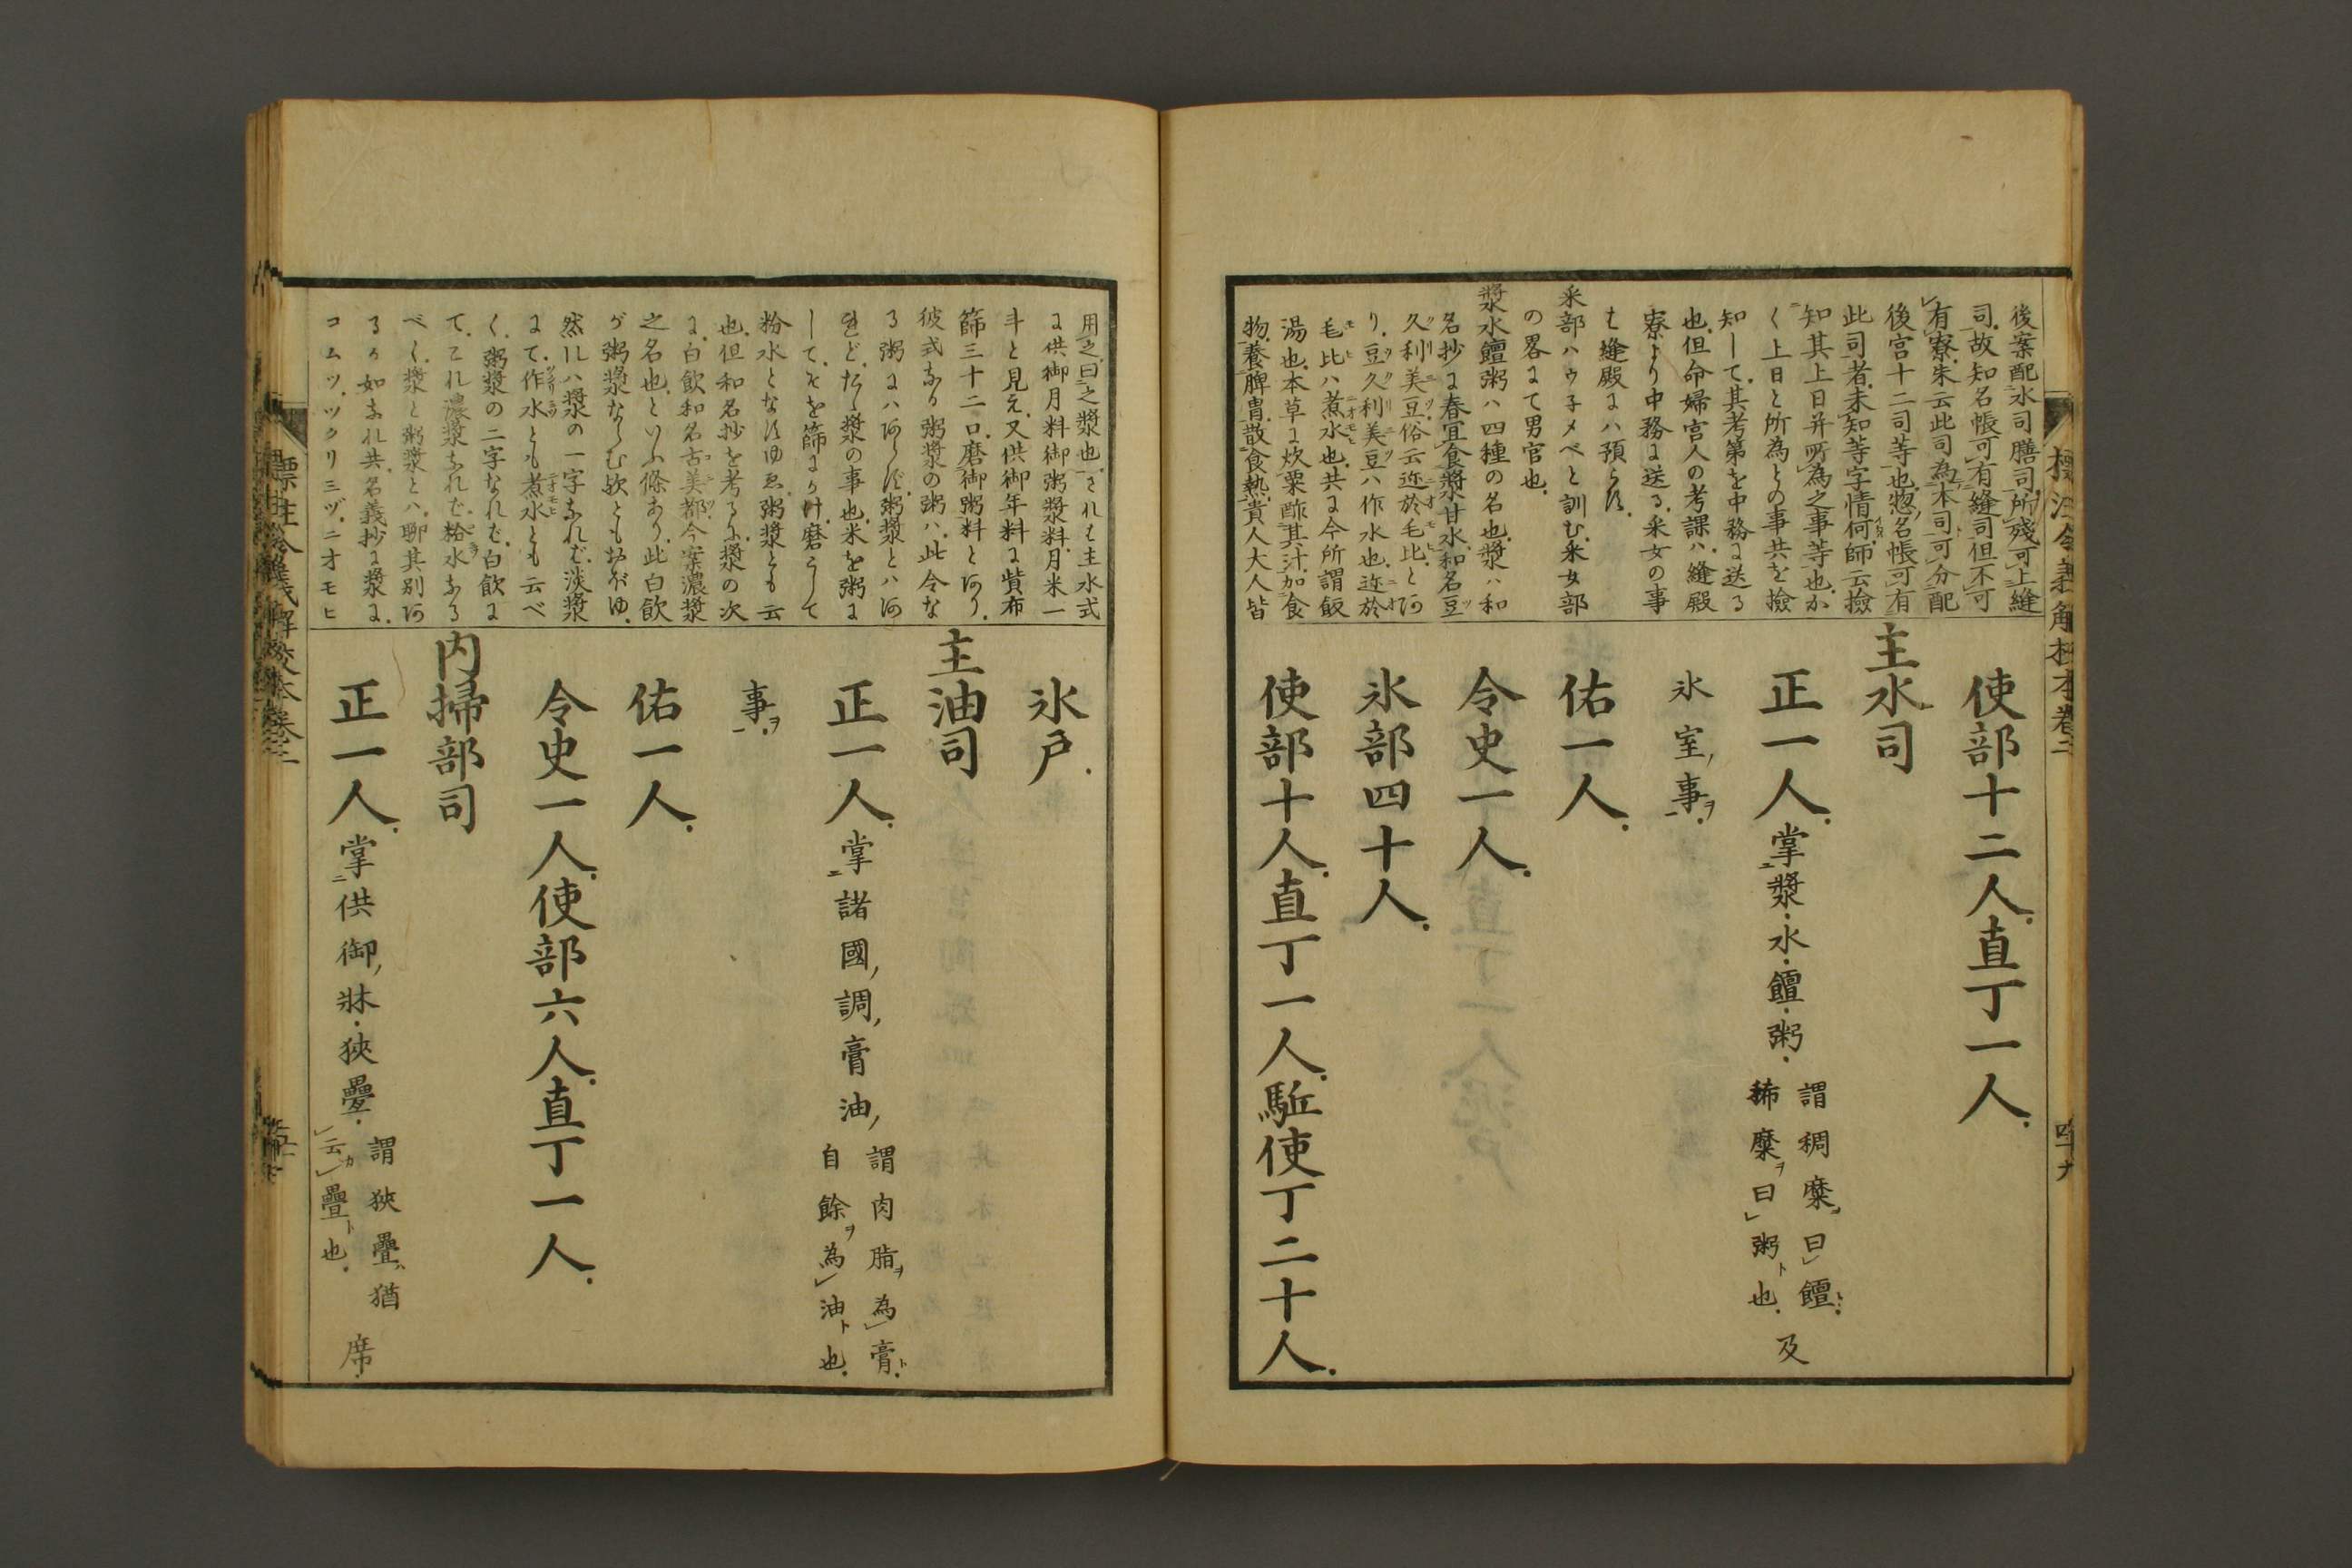 後案配水司膳司所殘可上縫
司故知名帳可有縫司但不可
有寮朱云此司為本司可分配
後宮十二司等也惣名帳可有
此司者未知等字情何師云撿
知其上日并所為之事等也か
く上日と所為との事共を撿
知して其考第を中務に送る
也但命婦宮人の考課ハ縫殿
寮より中務に送る采女の事
も縫殿にハ預らず
采部ハウネメベと訓む采女部
の畧にて男官也
漿水饘粥ハ四種の名也漿ハ和
名抄に春宜食漿甘水和名豆
久利美豆俗云迩於毛比とあ
り豆久利美豆ハ作水也迩於
毛比ハ煮水也共に今所謂飯
湯也本草に炊粟酢其汁加食
物養脾胃散食熱貴人大人皆
使部十二人直丁一人
主水司
正一人掌漿水饘粥
謂稠糜曰饘
稀糜曰粥也
及
氷室事
佑一人
令史一人
氷部四十人
使部十人直丁一人駈使丁二十人
用之曰之漿也されは主水式
に供御月料御粥漿料月米一
斗と見え又供御年料に貲布
篩三十二口磨御粥料とあり
彼式なる粥漿の粥ハ此令な
る粥にハあらず粥漿とハあ
れどたゞ漿の事也米を粥に
してそを篩にかけ磨らして
粉水となすゆゑ粥漿とも云
也但和名抄を考るに漿の次
に白飲和名古美都今案濃漿
之名也といふ條あり此白飲
が粥漿ならむ歟ともおぼゆ
然れハ漿の一字なれば淡漿
にて作水とも煮水とも云べ
く粥漿の二字なれば白飲に
てこれ濃漿なれば粉水なる
べく漿と粥漿とハ聊其別あ
るか如なれ共名義抄に漿に
コムツツクリミヅニオモヒ
氷戸
主油司
正一人掌諸國調膏油
謂肉脂為膏
自餘為油也
事
佑一人
令史一人使部六人直丁一人
内掃部司
正一人掌供御牀狹疊
謂狹疊猶
云疊也
席